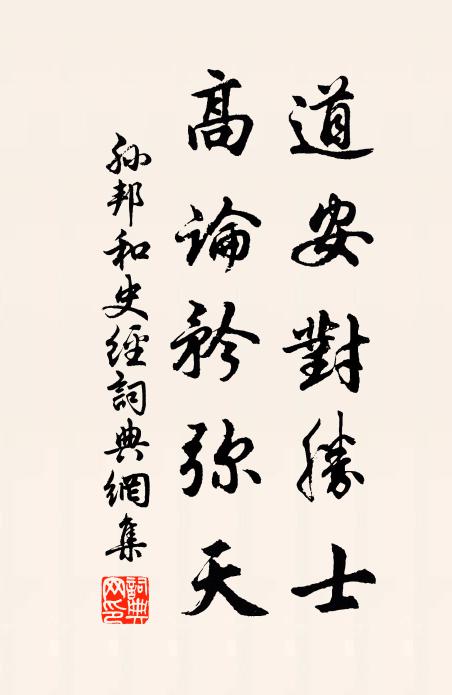 道安對勝士
高論矜弥天
孙邦和史經詞典網集
詞典網印